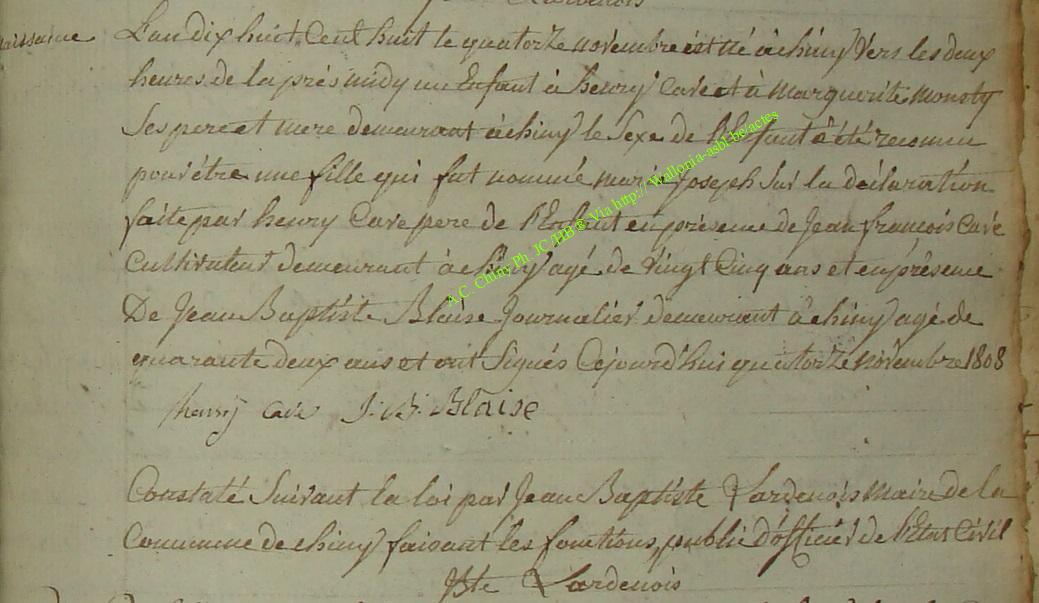 Lardenois
naissance
L'an dix huit Cent huit le quatorze novembre est né à chiny vers les deux
heures de la prés midy un Enfant à henry Cavé et à Marguerite Monsty
Ses pere et mere demeurant à chiny le Sexe de l'Enfant à été reconnu
pour être une fille qui fut nommé marie joseph Sur la déclaration
faite par henry Cavé pere de l'Enfant en présence de Jean françois Cavé
Cultivateur demeurant à chiny agé de Vingt Cinq ans et en présence
De Jean Baptiste Blaise Journalier demeurant à chiny agé de
quarante deux ans et ont Signés Cejourd'hui quatorze novembre 1808
henry cavé J. B. Blaise
Constaté Suivant la loi par Jean Baptiste Lardenois Maire de la
Commune de chiny faisant les fonctions public d'officier de l'Etat Civil
Jbte Lardenois
A.C. Chiny Ph JC /HB ® Via http:// Wallonia-asbl-be/actes